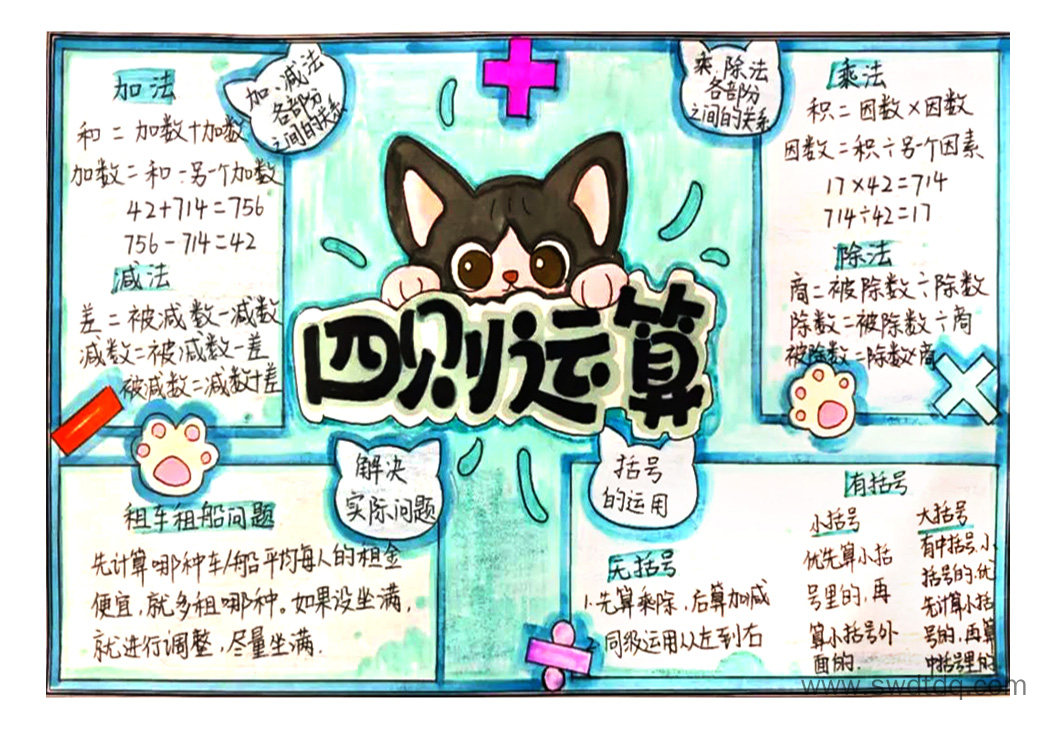 加、减法
各部分
之间的关系
加法
和=加数+加数
加数=和-另一个加数
42+714=756
756-714=42
减法
差=被减数-减数
减数=被减数-差
被减数=减数+差
乘、除法
各部分
之间的关系
乘法
积=因数×因数
因数=积÷另一个因素
17×42=714
714÷42=17
除法
商=被除数÷除数
除数=被除数÷商
被除数=除数×商
四则运算
解决
实际问题
租车租船问题
先计算哪种车/船平均每人的租金
便宜,就多租哪种。如果没坐满,
就进行调整,尽量坐满.
括号
的运用
无括号
1.先算乘除,后算加减
2.同级运用从左到右
有括号
小括号
优先算小括
号里的,再
算小括号外
面的.
大括号
有中括号,小
括号的,优
先计算小括
号的,再算
中括号里的
www.swdtdq.com